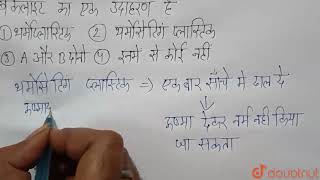 बैकेलाइट का एक उदाहरण है
① थर्मोप्लास्टिक ② थर्मोसेटिंग प्लास्टिक
③ A और B दोनो ④ इनमे से कोई नही
थर्मोसेटिंग प्लास्टिक ⇒ एक बार साँचे मे ढाल दे
ऊष्मा
⇓
ऊष्मा देकर नर्म नही किया
जा सकता
doubtnut